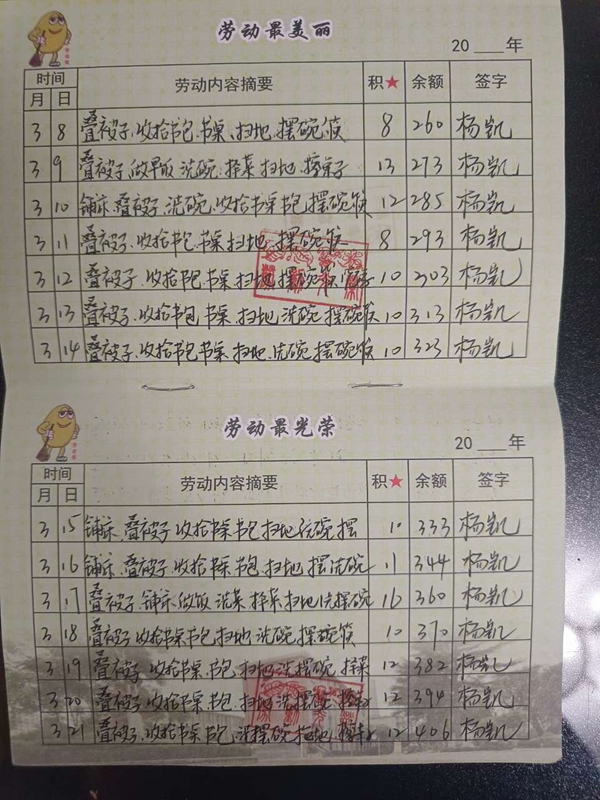 劳动最美丽
20 年
时间 劳动内容摘要 积★ 余额 签字
月 日
3 8 叠被子、收拾书包、书桌、扫地、摆碗筷 8 260 杨凯
3 9 叠被子、做早饭、洗碗、择菜、扫地、擦桌子 13 273 杨凯
3 10 铺床、叠被子、洗碗、收拾书桌书包、摆碗筷 12 285 杨凯
3 11 叠被子、收拾书包、书桌、扫地、摆碗筷 8 293 杨凯
3 12 叠被子、收拾书包、书桌、扫地、摆碗筷 10 203 杨凯
3 13 叠被子、收拾书包、书桌、扫地、洗碗、摆碗筷 10 313 杨凯
3 14 叠被子、收拾书包书桌、扫地、洗碗、摆碗筷 10 323 杨凯
劳动最光荣
20 年
时间 劳动内容摘要 积★ 余额 签字
月 日
3 15 铺床、叠被子、收拾书桌书包、扫地、洗碗、摆 10 333 杨凯
3 16 铺床、叠被子、收拾书桌、书包、扫地、摆洗碗 11 344 杨凯
3 17 叠被子、铺床、做饭、洗菜、择菜、扫地、洗摆碗 16 360 杨凯
3 18 叠被子、收拾书桌书包、扫地、洗碗、摆碗筷 10 370 杨凯
3 19 叠被子、收拾书桌、书包、扫地、洗摆碗、择菜 12 382 杨凯
3 20 叠被子、收拾书桌、书包、扫地、洗摆碗 12 394 杨凯
3 21 叠被子、收拾书桌、书包、洗摆碗、扫地 12 406 杨凯